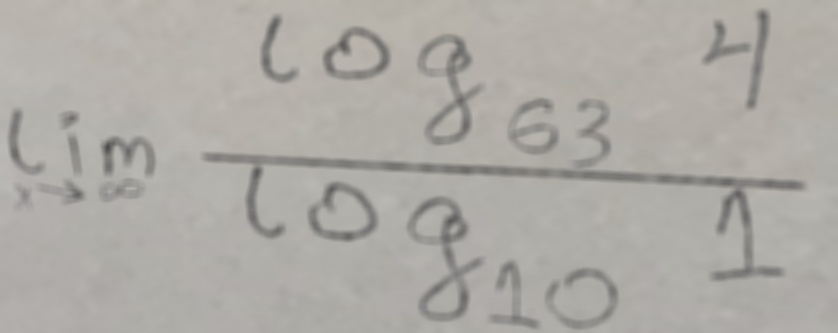 lim x→∞ log₆₃ 4 / log₁₀ 1